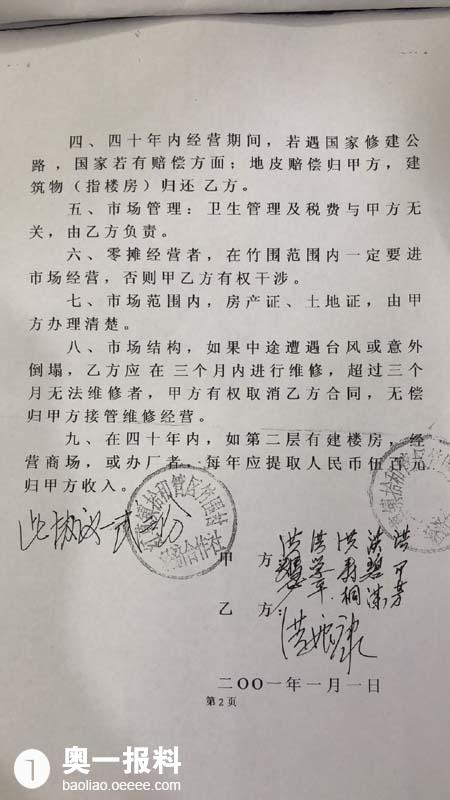 四、四十年内经营期间，若遇国家修建公
路，国家若有赔偿方面；地皮赔偿归甲方，建
筑物（指楼房）归还乙方。
五、市场管理：卫生管理及税费与甲方无
关，由乙方负责。
六、零摊经营者，在竹围范围内一定要进
市场经营，否则甲乙方有权干涉。
七、市场范围内，房产证、土地证，由甲
方办理清楚。
八、市场结构，如果中途遭遇台风或意外
倒塌，乙方应在三个月内进行维修，超过三个
月无法维修者，甲方有权取消乙方合同，无偿
归甲方接管维修经营。
九、在四十年内，如第二层有建楼房，经
营商场，或办厂者，每年应提取人民币伍百元
归甲方收入。
此协议一式 份
管区竹围村
经济合作社
甲方：
乙方：
二〇〇一年一月一日
第2页
1 奥一报料
baoliao.oeeee.com